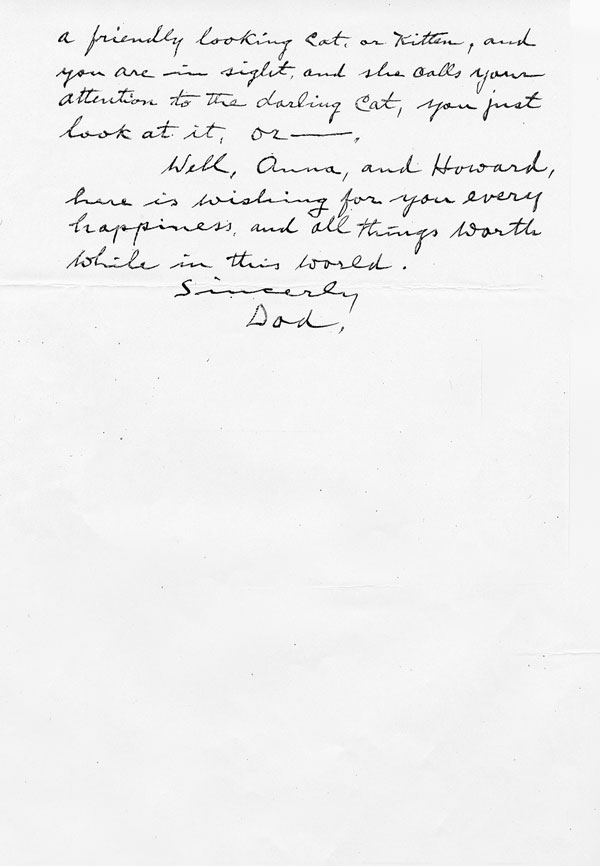 a friendly looking Cat, or Kitten, and
you are in sight, and she calls your
attention to the darling Cat, you just
look at it, or —.
Well, Anna, and Howard,
here is wishing for you every
happiness, and all things worth
while in this world.
Sincerely
Dad,